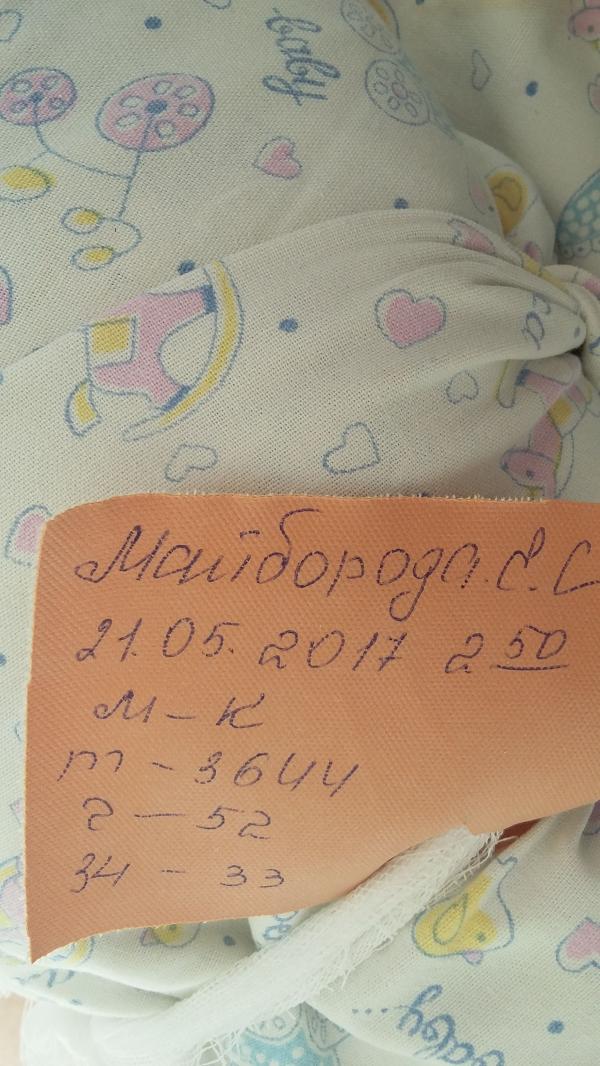 baby
Майборода. Є. С
21.05. 2017 2 50
м – к
m – 3644
г – 52
34 – 33
baby